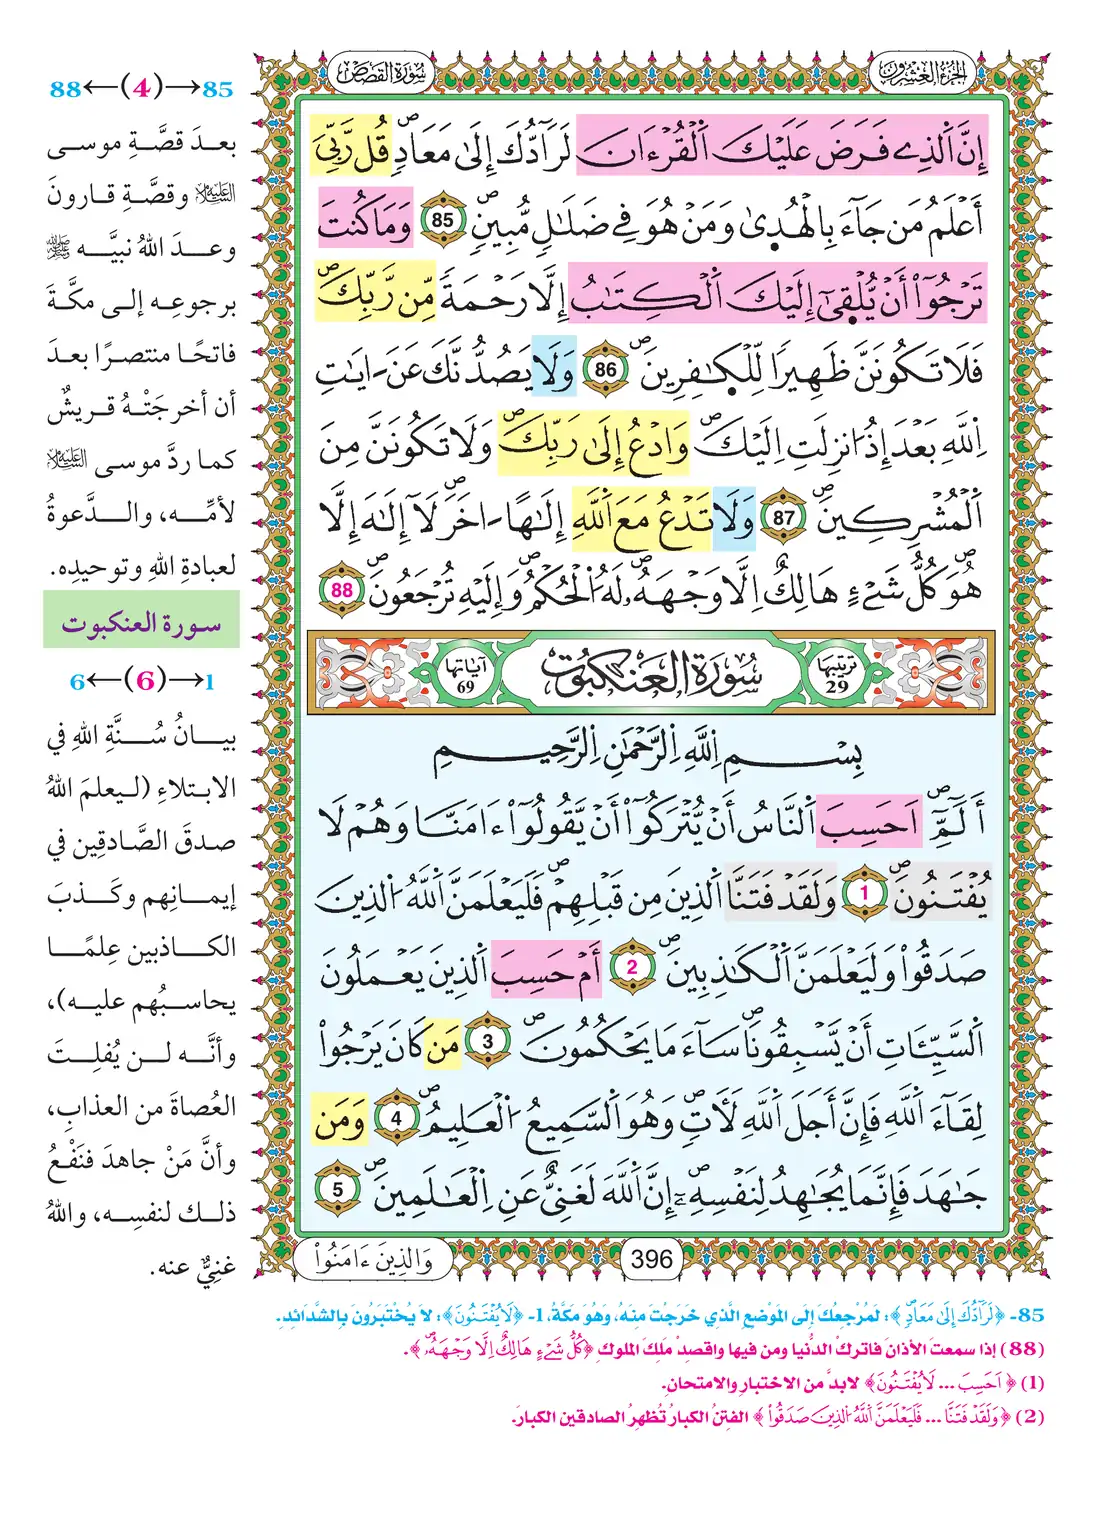 سُورَةُ القَصَصِ
الجُزءُ العِشْرُون
إِنَّ اَ۬لذِے فَرَضَ عَلَيْكَ اَ۬لْقُرْءَانَ لَرَآدُّكَ إِلَىٰ مَعَادٖۖ قُل رَّبِّيَ
أَعْلَمُ مَن جَآءَ بِالْهُدۭيٰ وَمَنْ هُوَ فِے ضَلَٰلٖ مُّبِينٖۖ 85 وَمَا كُنتَ
تَرْجُوٓاْ أَنْ يُّلْقۭيٰٓ إِلَيْكَ اَ۬لْكِتَٰبُ إِلَّا رَحْمَةٗ مِّن رَّبِّكَۖ
فَلَا تَكُونَنَّ ظَهِيراٗ لِّلْكٰ۪فِرِينَۖ 86 وَلَا يَصُدُّنَّكَ عَنَ ـ ايَٰتِ
اِ۬للَّهِ بَعْدَ إِذُ ا۟نزِلَتِ اِلَيْكَۖ وَادْعُ إِلَىٰ رَبِّكَۖ وَلَا تَكُونَنَّ مِنَ
اَ۬لْمُشْرِكِينَۖ 87 وَلَا تَدْعُ مَعَ اَ۬للَّهِ إِلَٰهاً ـ اخَرَۖ لَآ إِلَٰهَ إِلَّا
هُوَۖ كُلُّ شَےْءٍ هَالِكٌ اِلَّا وَجْهَهُۥۖ لَهُ اُ۬لْحُكْمُۖ وَإِلَيْهِ تُرْجَعُونَۖ 88
ترتيبها 29
سُورَةُ العَنكَبُوت
آيَاتها 69
بِسْمِ اِ۬للَّهِ اِ۬لرَّحْمَٰنِ اِ۬لرَّحِيمِ
أَلَٓمِّٓۖ اَحَسِبَ اَ۬لنَّاسُ أَنْ يُّتْرَكُوٓاْ أَنْ يَّقُولُوٓاْ ءَامَنَّا وَهُمْ لَا
يُفْتَنُونَۖ 1 وَلَقَدْ فَتَنَّا اَ۬لذِينَ مِن قَبْلِهِمْۖ فَلَيَعْلَمَنَّ اَ۬للَّهُ اُ۬لذِينَ
صَدَقُواْ وَلَيَعْلَمَنَّ اَ۬لْكَٰذِبِينَۖ 2 أَمْ حَسِبَ اَ۬لذِينَ يَعْمَلُونَ
اَ۬لسَّيِّـَٔاتِ أَنْ يَّسْبِقُونَاۖ سَآءَ مَا يَحْكُمُونَۖ 3 مَن كَانَ يَرْجُواْ
لِقَآءَ اَ۬للَّهِ فَإِنَّ أَجَلَ اَ۬للَّهِ لَأٓتٖۖ وَهُوَ اَ۬لسَّمِيعُ اُ۬لْعَلِيمُۖ 4 وَمَن
جَٰهَدَ فَإِنَّمَا يُجَٰهِدُ لِنَفْسِهِۦٓۖ إِنَّ اَ۬للَّهَ لَغَنِيٌّ عَنِ اِ۬لْعَٰلَمِينَۖ 5
396
وَالذِينَ ءَامَنُواْ
85→(4)←88
بعدَ قصَّةِ موسى
عليه السلام وقصَّةِ قارونَ
وعدَ اللهُ نبيَّه ﷺ
برجوعِه إلى مكَّةَ
فاتحًا منتصرًا بعدَ
أن أخرجَتْهُ قريشٌ
كما ردَّ موسى عليه السلام
لأمِّه، والدَّعوةُ
لعبادةِ اللهِ وتوحيدِه.
سورة العنكبوت
1→(6)←6
بيانُ سُنَّةِ اللهِ في
الابتلاءِ (ليعلمَ اللهُ
صدقَ الصَّادقِين في
إيمانِهم وكَذبَ
الكاذبين عِلمًا
يحاسبُهم عليه)،
وأنَّه لن يُفلِتَ
العُصاةَ من العذابِ،
وأنَّ مَنْ جاهدَ فنَفْعُ
ذلك لنفسِه، واللهُ
غنِيٌّ عنه.
85- ﴿لَرَآدُّكَ إِلَىٰ مَعَادٖ﴾: لَمُرْجِعُكَ إِلى المَوْضعِ الَّذي خَرَجْتَ مِنْهُ، وَهُوَ مَكَّةُ، 1- ﴿لَا يُفْتَنُونَ﴾: لاَ يُخْتَبَرُونَ بِالشَّدَائِدِ.
(88) إذا سمعتَ الأذانَ فاتركْ الدُّنيا ومن فيها واقصدْ مَلِكَ الملوكِ ﴿كُلُّ شَےْءٍ هَالِكٌ اِلَّا وَجْهَهُۥ﴾.
(1) ﴿اَحَسِبَ ... لَا يُفْتَنُونَ﴾ لابدَّ من الاختبارِ والامتحانِ.
(2) ﴿وَلَقَدْ فَتَنَّا ... فَلَيَعْلَمَنَّ اَ۬للَّهُ اُ۬لذِينَ صَدَقُواْ﴾ الفتنُ الكبارُ تُظهِرُ الصادقين الكبارَ.